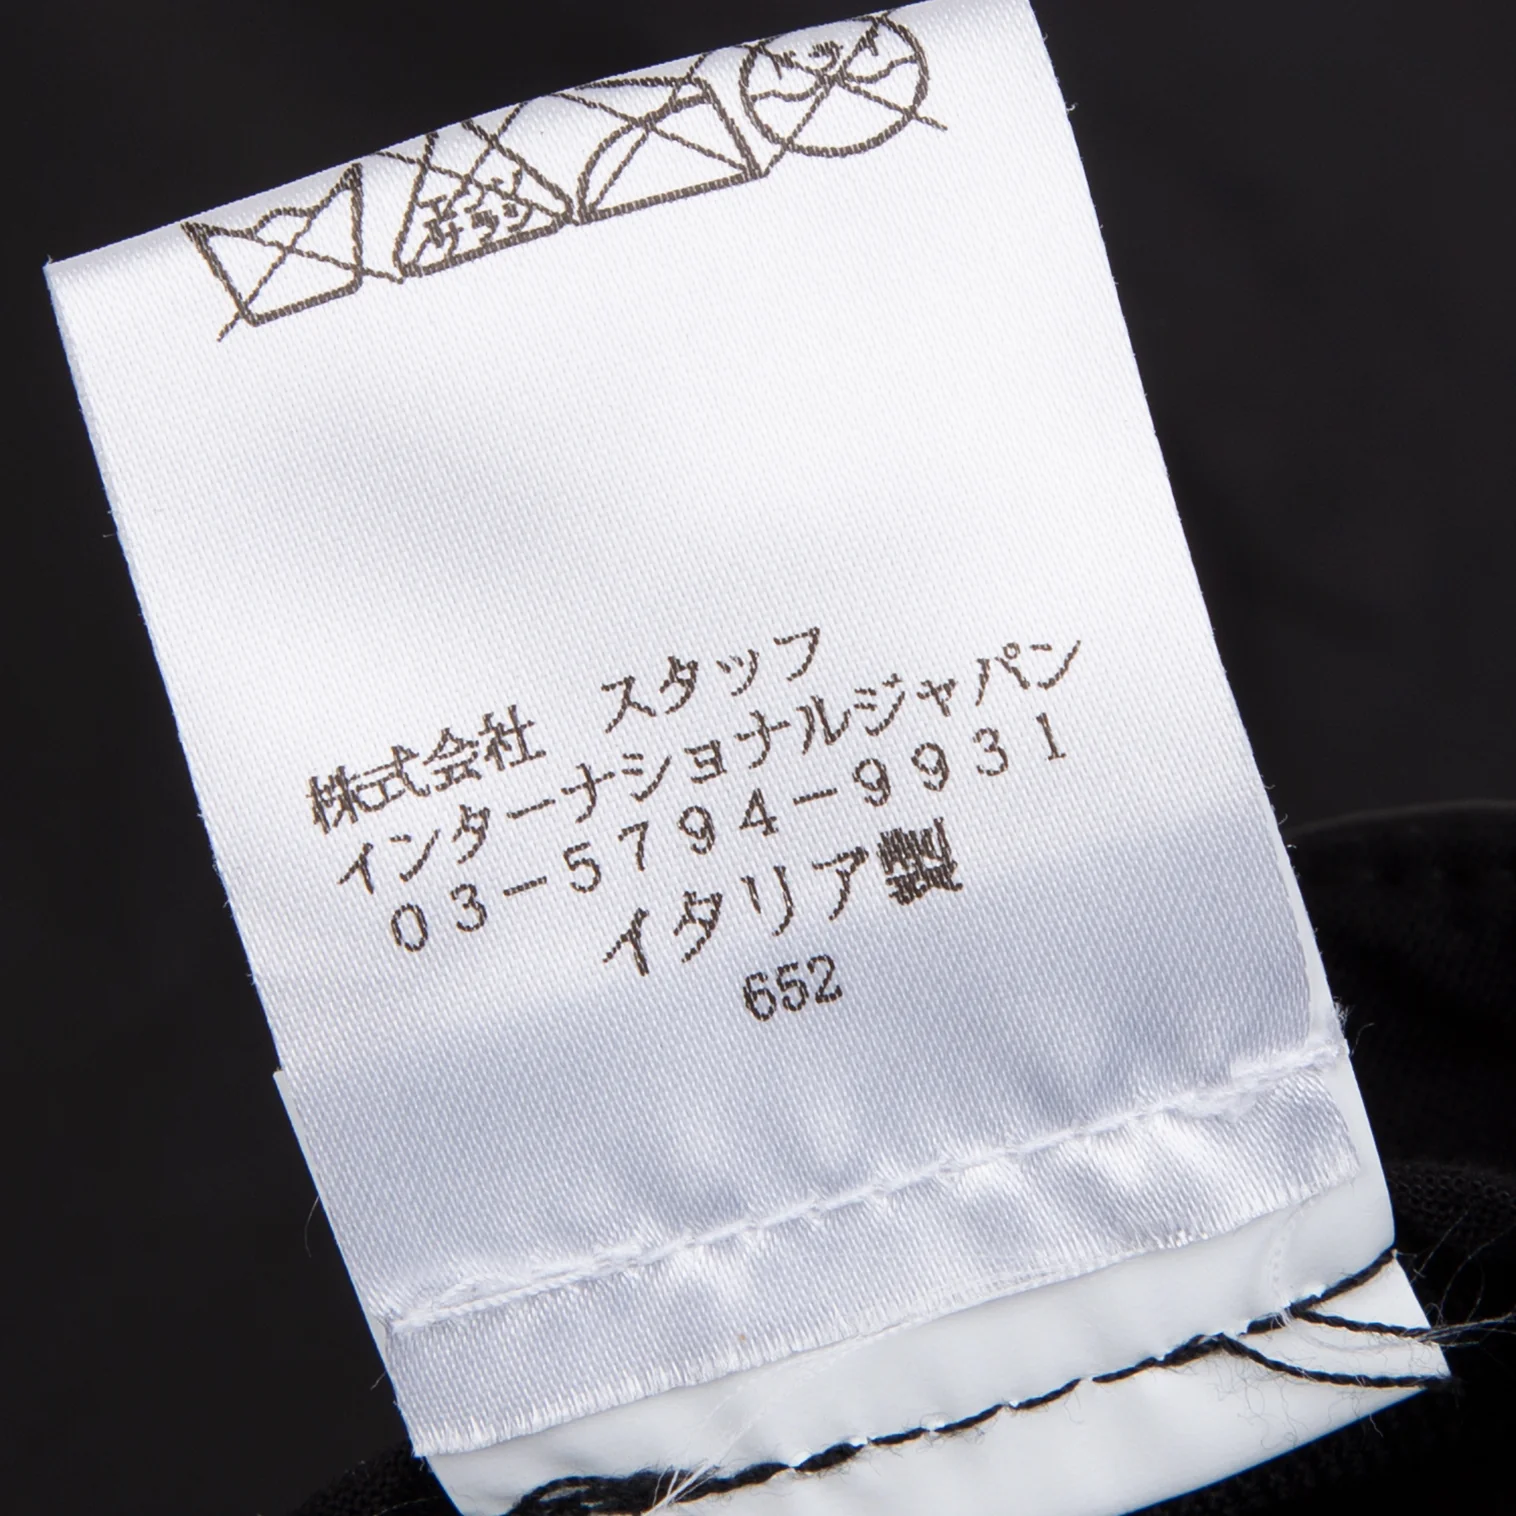 エンソ
サラシ
ドライ
株式会社　スタッフ
インターナショナルジャパン
03-5794-9931
イタリア製
652